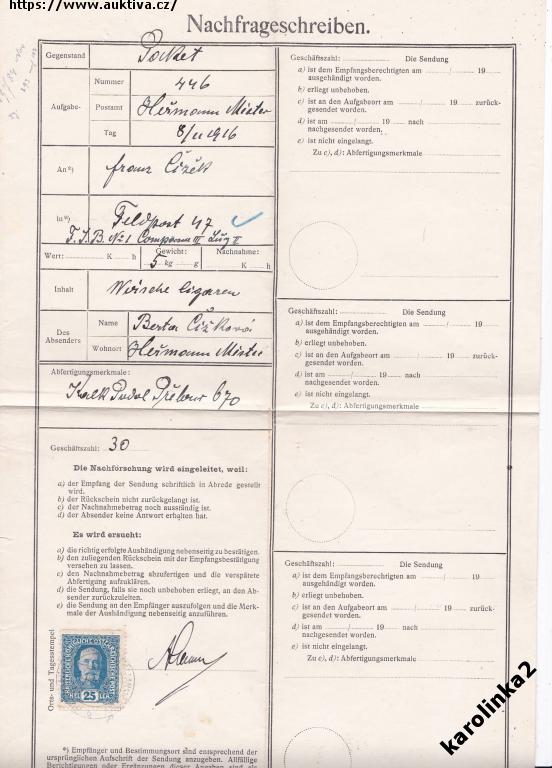 https://www.auktiva.cz/
Nachfrageschreiben.
Gegenstand Packet
Aufgabe- Nummer 446
Postamt Heřmann Městec
Tag 8/II 1916
An*) Franz Čížek
in*) Feldpost 47
F.J.B. No 1 Compann III Zug II
Wert: K h Gewicht: 5 kg g Nachnahme: K h
Inhalt Cigaren
Des Absenders Name Berta Čížková
Wohnort Heřmann Městec
Abfertigungsmerkmale:
670
Geschäftszahl: 30
Die Nachforschung wird eingeleitet, weil:
a) der Empfang der Sendung schriftlich in Abrede gestellt
wird.
b) der Rückschein nicht zurückgelangt ist.
c) der Nachnahmebetrag noch ausständig ist.
d) der Absender keine Antwort erhalten hat.
Es wird ersucht:
a) die richtig erfolgte Aushändigung nebenseitig zu bestätigen.
b) den zuliegenden Rückschein mit der Empfangsbestätigung
versehen zu lassen.
c) den Nachnahmebetrag abzufertigen und die verspätete
Abfertigung aufzuklären.
d) die Sendung, falls sie noch unbehoben erliegt, an den Ab-
sender zurückzuleiten.
e) die Sendung an den Empfänger auszufolgen und die Merk-
male der Aushändigung nebenseitig anzuführen.
Orts- und Tagesstempel
25
*) Empfänger und Bestimmungsort sind entsprechend der
ursprünglichen Aufschrift der Sendung anzugeben. Allfällige
Geschäftszahl: Die Sendung
a) ist dem Empfangsberechtigten am / 19
ausgehändigt worden.
b) erliegt unbehoben.
c) ist an den Aufgabeort am / 19 zurück-
gesendet worden.
d) ist am / 19 nach
nachgesendet worden.
e) ist nicht eingelangt.
Zu c), d): Abfertigungsmerkmale:
Geschäftszahl: Die Sendung
a) ist dem Empfangsberechtigten am / 19
ausgehändigt worden.
b) erliegt unbehoben.
c) ist an den Aufgabeort am / 19 zurück-
gesendet worden.
d) ist am / 19 nach
nachgesendet worden.
e) ist nicht eingelangt.
Zu c), d): Abfertigungsmerkmale:
Geschäftszahl: Die Sendung
a) ist dem Empfangsberechtigten am / 19
ausgehändigt worden.
b) erliegt unbehoben.
c) ist an den Aufgabeort am / 19 zurück-
gesendet worden.
d) ist am / 19 nach
nachgesendet worden.
e) ist nicht eingelangt.
Zu c), d): Abfertigungsmerkmale:
karolinka2